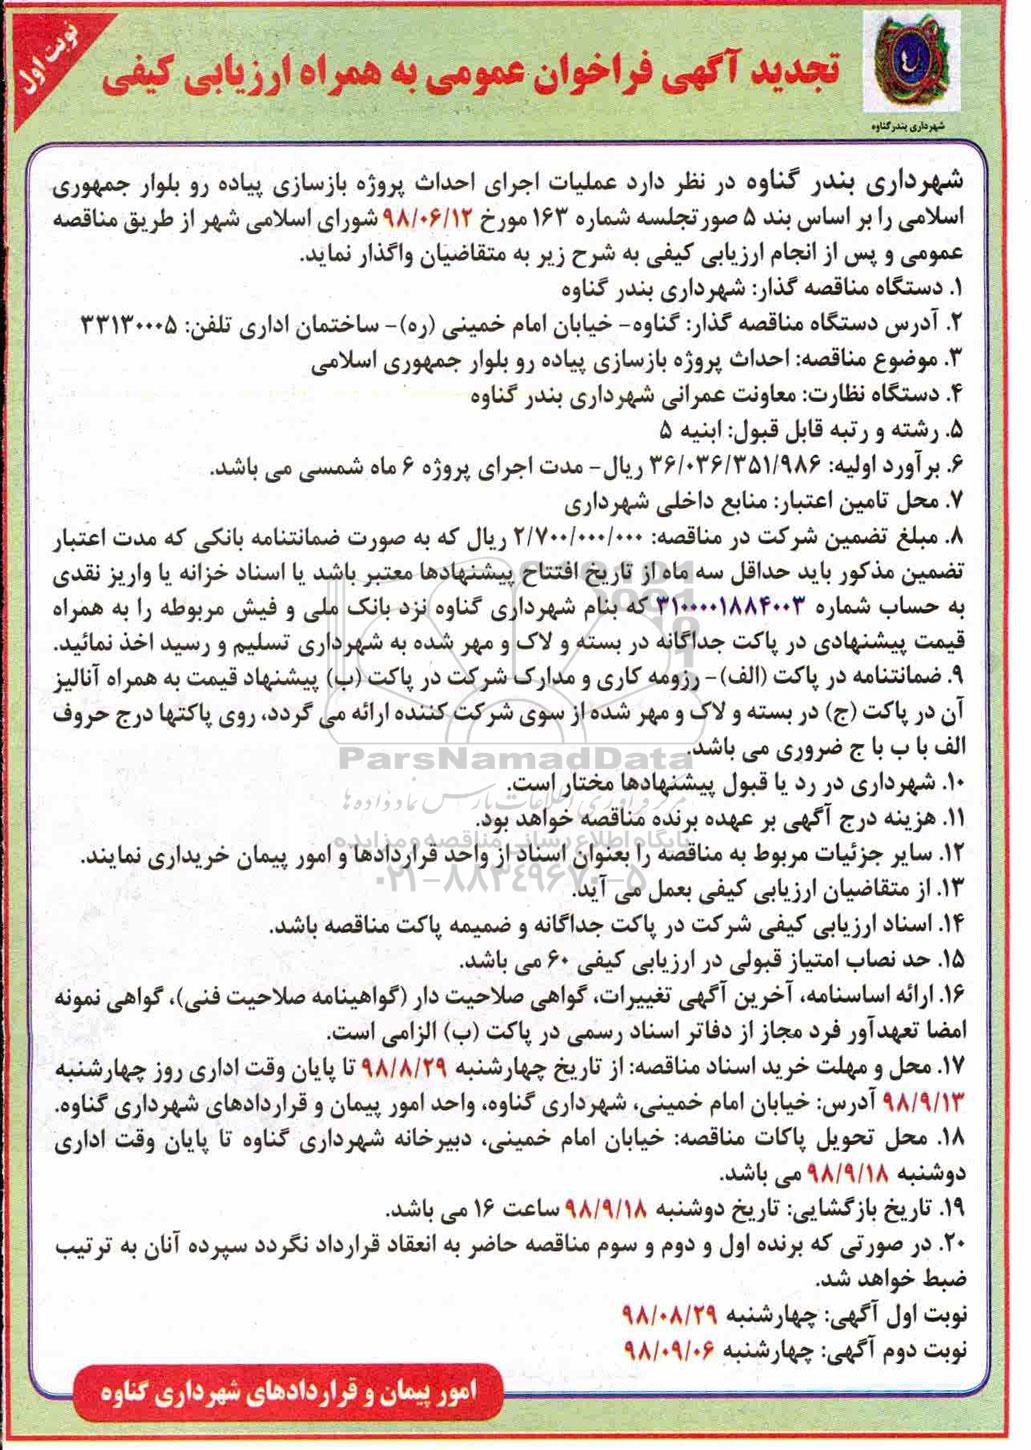 نوبت اول
تجدید آگهی فراخوان عمومی به همراه ارزیابی کیفی
شهرداری بندرگناوه
شهرداری بندر گناوه در نظر دارد عملیات اجرای احداث پروژه بازسازی پیاده رو بلوار جمهوری
اسلامی را بر اساس بند ۵ صورتجلسه شماره ۱۶۳ مورخ ۹۸/۰۶/۱۲ شورای اسلامی شهر از طریق مناقصه
عمومی و پس از انجام ارزیابی کیفی به شرح زیر به متقاضیان واگذار نماید.
۱. دستگاه مناقصه گذار: شهرداری بندر گناوه
۲. آدرس دستگاه مناقصه گذار: گناوه- خیابان امام خمینی (ره)- ساختمان اداری تلفن: ۳۳۱۳۰۰۰۵
۳. موضوع مناقصه: احداث پروژه بازسازی پیاده رو بلوار جمهوری اسلامی
۴. دستگاه نظارت: معاونت عمرانی شهرداری بندر گناوه
۵. رشته و رتبه قابل قبول: ابنیه ۵
۶. برآورد اولیه: ۳۶/۰۳۶/۳۵۱/۹۸۶ ریال- مدت اجرای پروژه ۶ ماه شمسی می باشد.
۷. محل تامین اعتبار: منابع داخلی شهرداری
۸. مبلغ تضمین شرکت در مناقصه: ۲/۷۰۰/۰۰۰/۰۰۰ ریال که به صورت ضمانتنامه بانکی که مدت اعتبار
تضمین مذکور باید حداقل سه ماه از تاریخ افتتاح پیشنهادها معتبر باشد یا اسناد خزانه یا واریز نقدی
به حساب شماره ۳۱۰۰۰۰۱۸۸۴۰۰۳ که بنام شهرداری گناوه نزد بانک ملی و فیش مربوطه را به همراه
قیمت پیشنهادی در پاکت جداگانه در بسته و لاک و مهر شده به شهرداری تسلیم و رسید اخذ نمائید.
۹. ضمانتنامه در پاکت (الف)- رزومه کاری و مدارک شرکت در پاکت (ب) پیشنهاد قیمت به همراه آنالیز
آن در پاکت (ج) در بسته و لاک و مهر شده از سوی شرکت کننده ارائه می گردد، روی پاکتها درج حروف
الف با ب با ج ضروری می باشد.
ParsNamadData
۱۰. شهرداری در رد یا قبول پیشنهادها مختار است.
مرکز فرآوری اطلاعات پارس نماد داده ها
۱۱. هزینه درج آگهی بر عهده برنده مناقصه خواهد بود.
پایگاه اطلاع رسانی مناقصه و مزایده
۱۲. سایر جزئیات مربوط به مناقصه را بعنوان اسناد از واحد قراردادها و امور پیمان خریداری نمایند.
۰۲۱-۸۸۳۴۹۶۷۰-۵
۱۳. از متقاضیان ارزیابی کیفی بعمل می آید.
۱۴. اسناد ارزیابی کیفی شرکت در پاکت جداگانه و ضمیمه پاکت مناقصه باشد.
۱۵. حد نصاب امتیاز قبولی در ارزیابی کیفی ۶۰ می باشد.
۱۶. ارائه اساسنامه، آخرین آگهی تغییرات، گواهی صلاحیت دار (گواهینامه صلاحیت فنی)، گواهی نمونه
امضا تعهدآور فرد مجاز از دفاتر اسناد رسمی در پاکت (ب) الزامی است.
۱۷. محل و مهلت خرید اسناد مناقصه: از تاریخ چهارشنبه ۹۸/۸/۲۹ تا پایان وقت اداری روز چهارشنبه
۹۸/۹/۱۳ آدرس: خیابان امام خمینی، شهرداری گناوه، واحد امور پیمان و قراردادهای شهرداری گناوه.
۱۸. محل تحویل پاکات مناقصه: خیابان امام خمینی، دبیرخانه شهرداری گناوه تا پایان وقت اداری
دوشنبه ۹۸/۹/۱۸ می باشد.
۱۹. تاریخ بازگشایی: تاریخ دوشنبه ۹۸/۹/۱۸ ساعت ۱۶ می باشد.
۲۰. در صورتی که برنده اول و دوم و سوم مناقصه حاضر به انعقاد قرارداد نگردد سپرده آنان به ترتیب
ضبط خواهد شد.
نوبت اول آگهی: چهارشنبه ۹۸/۰۸/۲۹
نوبت دوم آگهی: چهارشنبه ۹۸/۰۹/۰۶
امور پیمان و قراردادهای شهرداری گناوه